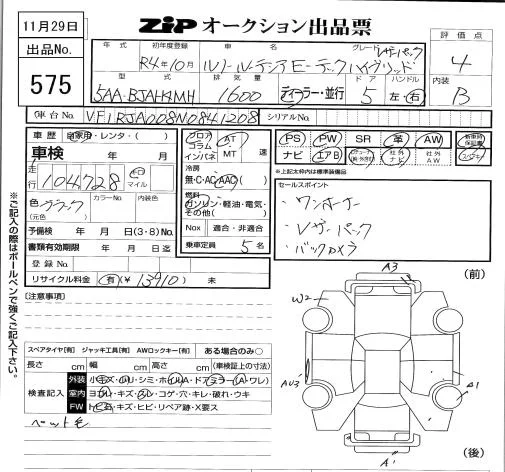 11月29日
ZiP オークション出品票
出品No.
575
年式 初年度登録 車名 グレード
R4年10月 ルノールーテシアE-テックハイブリッド レザーパック
評価点
4
型式 排気量 ドア ハンドル
5AA-BJAH4MH 1600 ディーラー・並行 5 左・右
内装
B
車台No. VF1RJA008W0841208 シリアルNo.
車歴 自家用・レンタ・( )
車検 年 月
走行 104,728 キロ マイル
色 ブラック (元色) カラーNo. 内装色
予備検 年 月 日(3・8)No.
書類有効期限 年 月 日迄
登録No.
リサイクル料金 有(¥ 13910 ) 未
フロア コラム インパネ AT MT 速
冷房 無・C・AC・AAC( )
燃料 ガソリン・軽油・電気・その他( )
Nox 適合・非適合
乗車定員 5 名
PS PW SR 革 AW
ナビ エアB
社外ナビ 社外AW
※上記太枠内は標準装備品
セールスポイント
・ワンオーナー
・レザーパック
・バックカメラ
[注意事項]
スペアタイヤ[有] ジャッキ工具[有] AWロックキー[有] ある場合のみ○
長さ cm 幅 cm 高さ cm (車検証上の寸法)
検査記入
外装 小キズ・凹リ・シミ・ホイルA・ドアミラー(A・ワレ)
室内 ヨゴレ・キズ・スレ・コゲ・穴・キレ・破れ・ウキ
FW トビ石・キズ・ヒビ・リペア跡・X要ス
ペット毛
※ご記入の際はボールペンで強くご記入下さい。
(前)
A3
W2
AU3
A1
A1
(後)